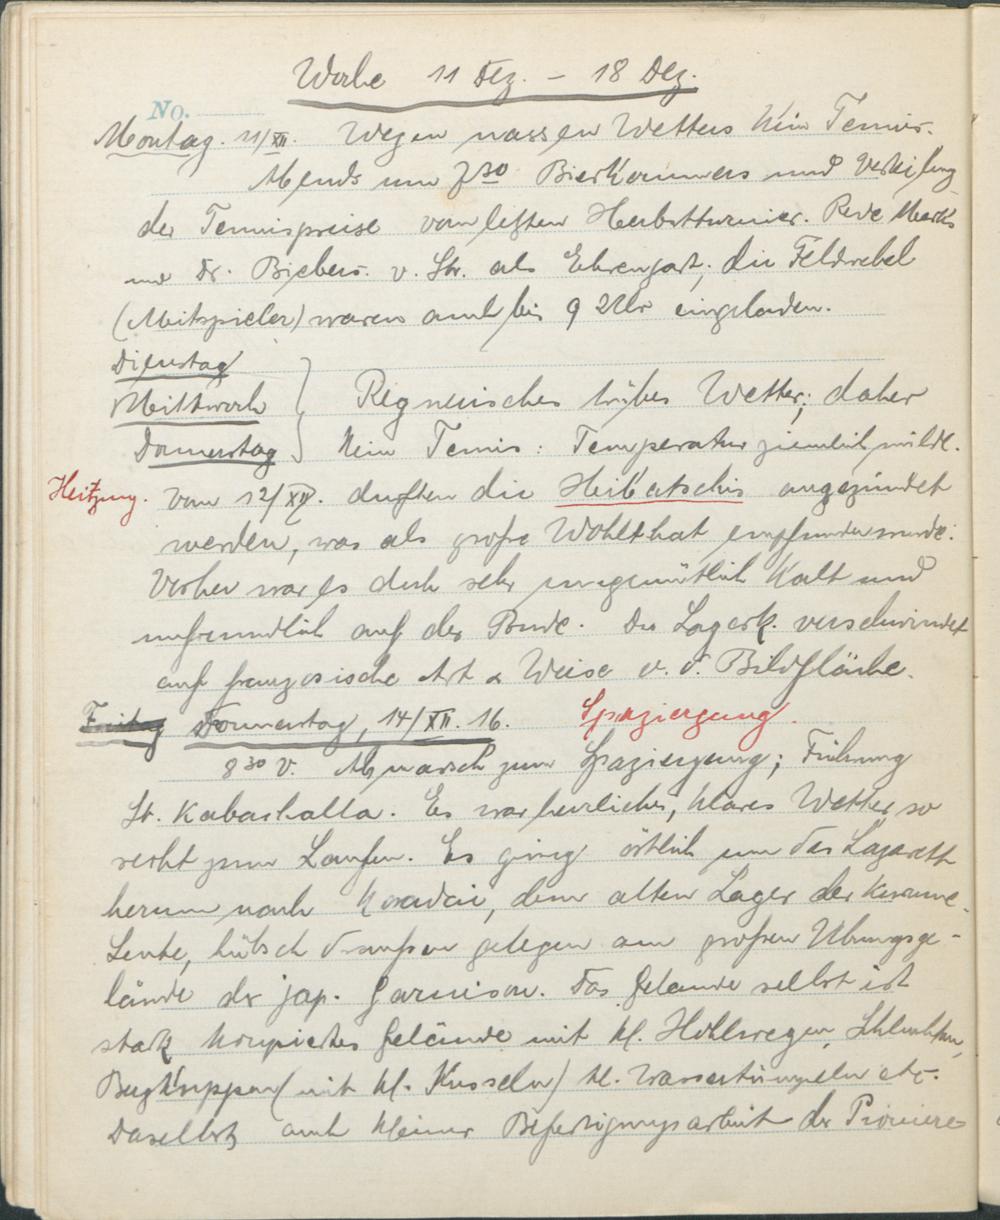 Woche 11 Dez. – 18 Dez.
No.
Montag. 11/XII. Wegen nassen Wetters kein Tennis.
Abends um 7 30 Bierkommers und Verteilung
der Tennispreise vom letzten Herbstturnier. Rede
und Dr. Biebers. v. Str. als Ehrengast, die Feldwebel
(Mitspieler) waren auch bis 9 Uhr eingeladen.
Dienstag
Mittwoch } Regnerisches trübes Wetter; daher
Donnerstag kein Tennis: Temperatur ziemlich milde.
Heitzung. Vom 12/XII. durften die Heibatschis angezündet
werden, was als große Wohlthat empfunden wurde.
Vorher war es doch sehr ungemütlich kalt und
unfreundlich auf der Bude. Der Lagerk. verschwindet
auf französische Art & Weise v. d. Bildfläche.
Freitag Donnerstag, 14/XII. 16. Spaziergang.
8 30 V. Abmarsch zum Spaziergang; Führung
Lt. Kabashatta. Es war herrliches, klares Wetter, so
recht zum Laufen. Es ging östlich um das Lazarett
herum nach Kosadai, dem alten Lager der Kurume-
Leute, hübsch draußen gelegen am großen Übungsge-
lände der jap. Garnison. Das Gelände selbst ist
stark koupiertes Gelände mit kl. Hohlwegen, Schluchten,
Bergkuppen (mit kl. Kusseln) kl. Wassertümpeln etc.
Daselbst auch kleiner Befestigungsarbeit der Pioniere